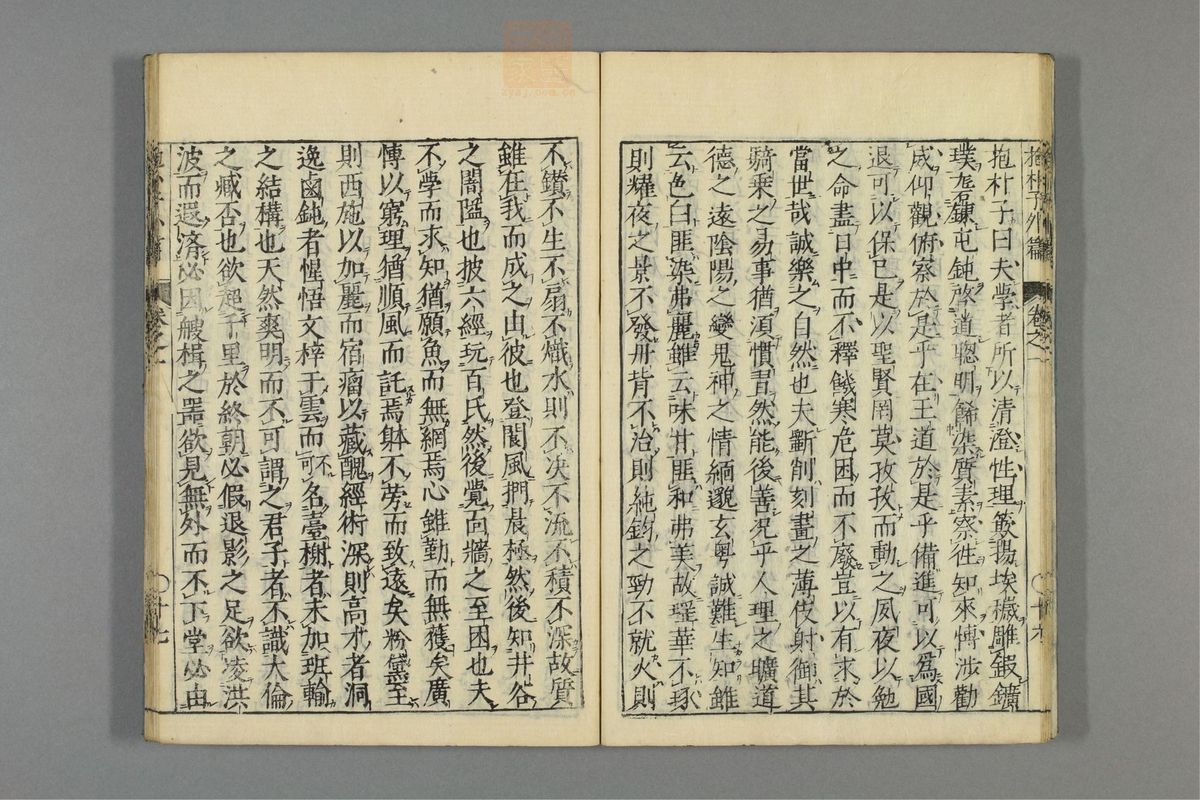 抱朴子外篇 卷之一
抱朴子曰夫學者所以清澄性理簸揚埃穢雕鍛鑛
璞礱鍊屯鈍啓道聰明餙染質素察徃知來博涉勸
戒仰觀俯察於是乎在王道於是乎備進可以爲國
退可以保己是以聖賢罔莫孜孜而勤之夙夜以勉
之命盡日中而不釋饑寒危困而不廢豈以有求於
當世哉誠樂之自然也夫斵削刻畫之薄伎射御其
騎乘之易事猶湏慣習然能後善况乎人理之曠道
德之遠陰陽之變鬼神之情緬邈玄奧誠難生知雖
云色白匪染弗麗雖云味甘匪和弗美故瑶華不琢
則耀夜之景不發丹青不治則純鈎之勁不就火則
不鑚不生不扇不熾水則不决不流不積不深故質
雖在我而成之由彼也登閬風捫晨極然後知井谷
之闇隘也披六經玩百氏然後覺面牆之至困也夫
不學而求知猶願魚而無網焉心雖勤而無獲矣廣
博以窮理猶順風而託焉躰不勞而致遠矣粉黛至
則西施以加麗而宿瘤以藏醜經術深則高才者洞
逸鹵鈍者惺悟文梓于雲而不可名臺榭者未加班輸
之結構也天然爽明而不可謂之君子者不識大倫
之臧否也欲超千里於終朝必假退影之足欲凌洪
波而遐濟必因艘楫之噐欲見無外而不下堂必由
卷之一